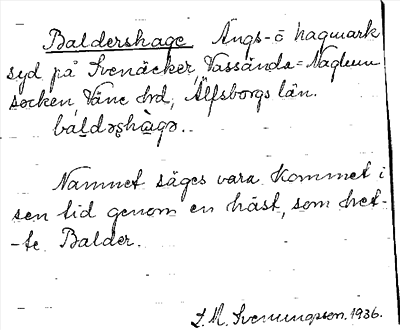 Baldershage Ängs- o hagmark
syd på Svenäcker, Vassända-Naglum
socken, Väne hrd, Älfsborgs län.
báldəʂhàgə..
Namnet säges vara kommet i
sen tid genom en häst, som het-
-te Balder.
L. M. Svenungsson. 1936.